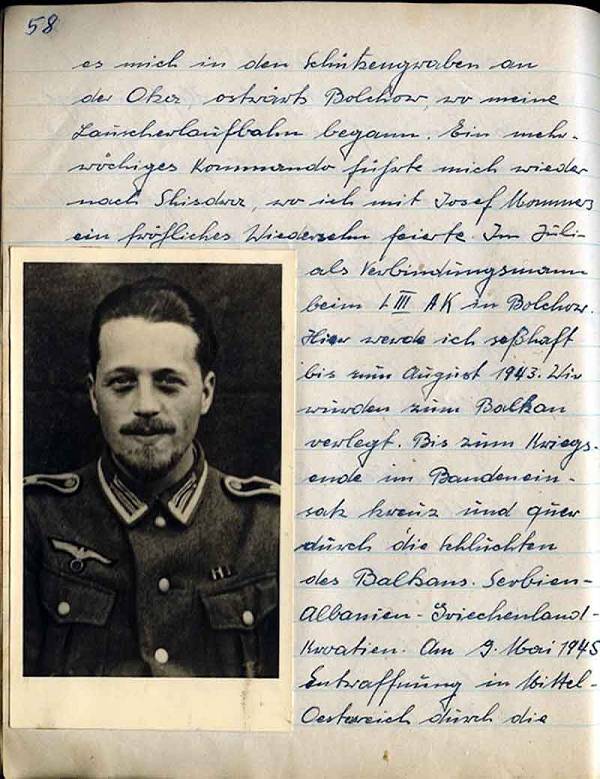 58
es mich in den Schützengraben an
der Oka, ostwärts Bolchow, wo meine
Lauscherlaufbahn begann. Ein mehr-
wöchiges Kommando führte mich wieder
nach Shisdra, wo ich mit Josef Mommers
ein fröhliches Wiedersehn feierte. Im Juli
als Verbindungsmann
beim LIII AK in Bolchow.
Hier werde ich seßhaft
bis zum August 1943. Wir
wurden zum Balkan
verlegt. Bis zum Kriegs-
ende im Bandenein-
satz kreuz und quer
durch die Schluchten
des Balkans. Serbien-
Albanien-Griechenland-
Kroatien. Am 9. Mai 1945
Entwaffnung in Mittel-
Oesterreich durch die